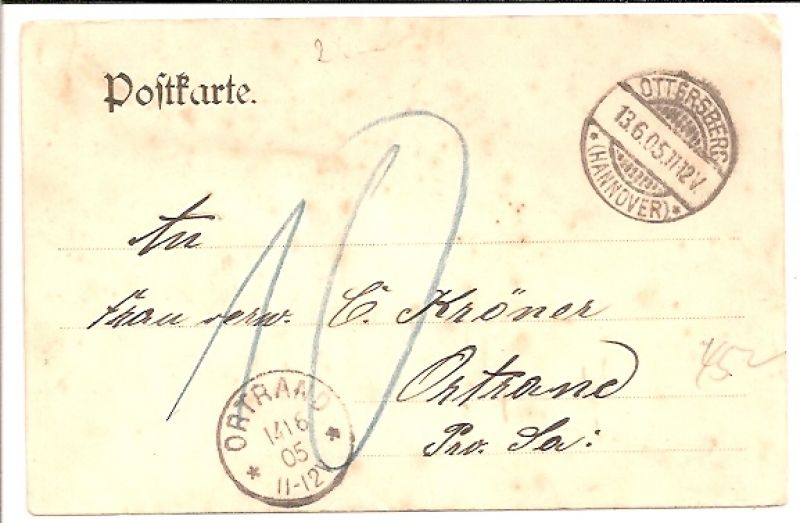 2
Postkarte.
OTTERSBERG
13.6.05.11-12V.
* (HANNOVER) *
An
Frau verw. C. Kröner
Ortrand
Pro. Sa:
10
45
ORTRAND
14 6
05
* 11-12V *